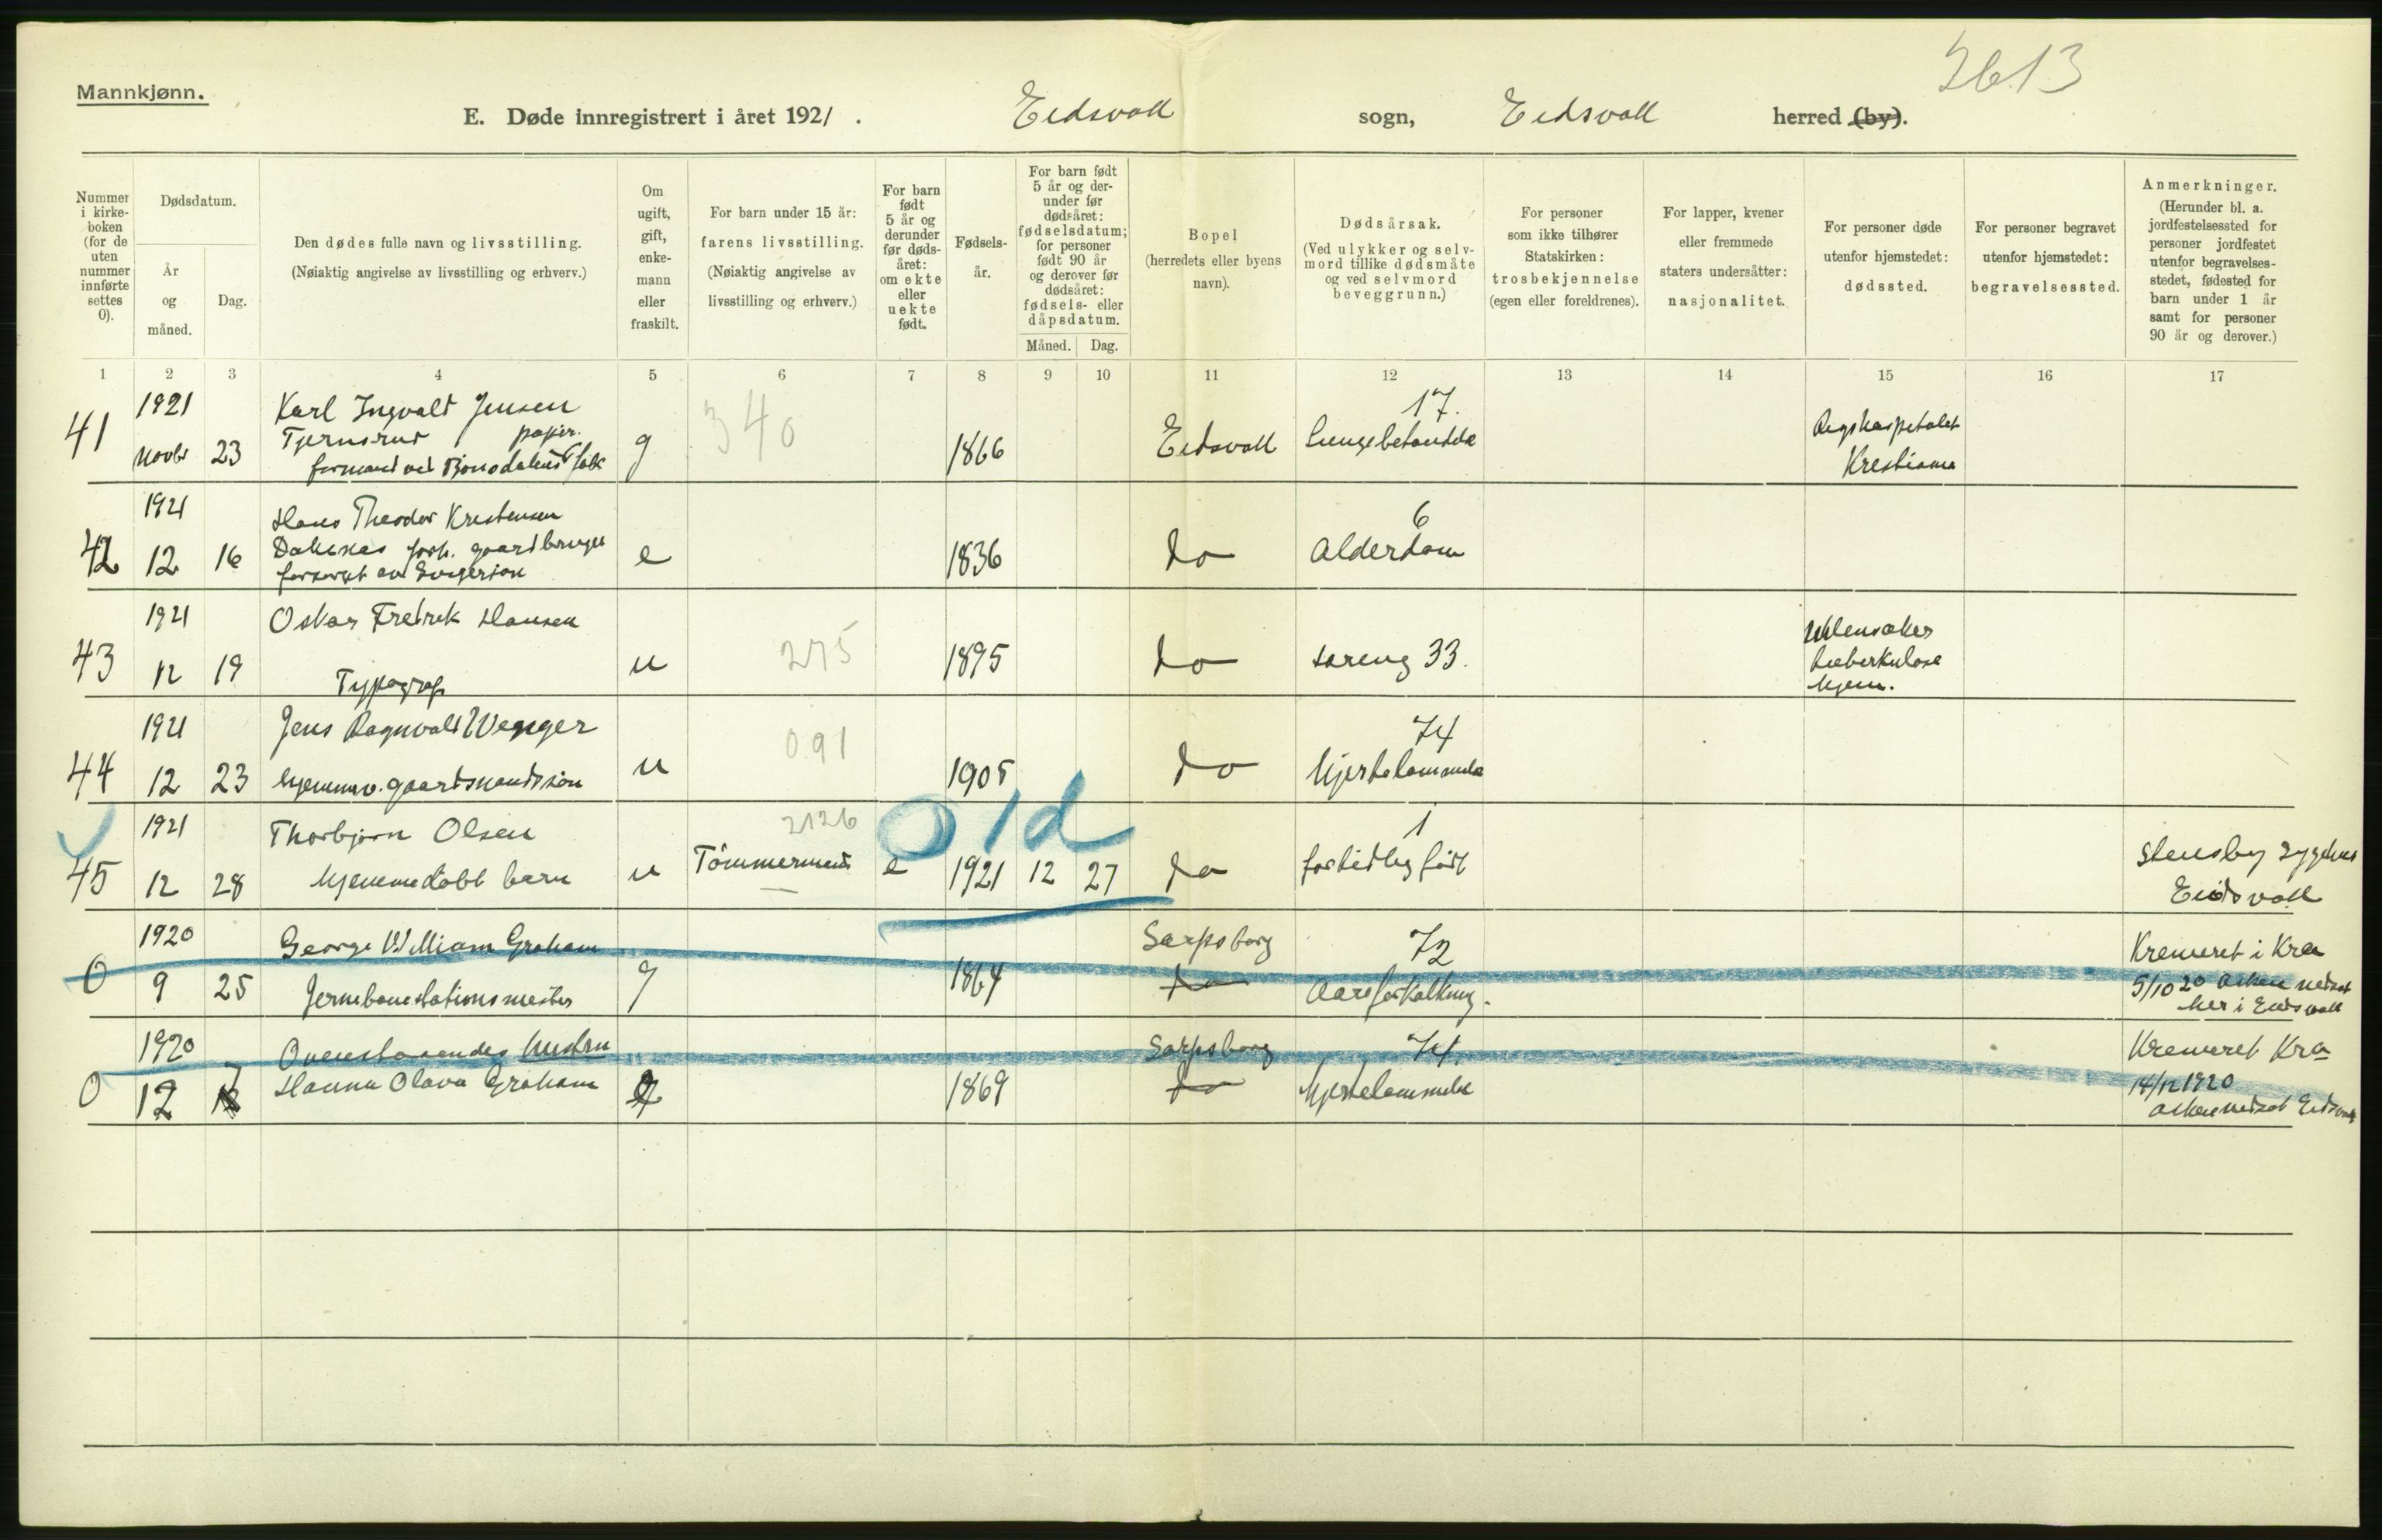 2613
Mannkjønn.
E. Døde innregistrert i året 1921 . Eidsvoll sogn, Eidsvoll herred (by).
Nummer i kirke- boken (for de uten nummer innførte settes 0).
Dødsdatum.
År og måned.
Dag.
Den dødes fulle navn og livsstilling.
(Nøiaktig angivelse av livsstilling og erhverv.)
Om ugift, gift, enke- mann eller fraskilt.
For barn under 15 år:
farens livsstilling.
(Nøiaktig angivelse av livsstilling og erhverv.)
For barn født 5 år og derunder før døds- året: om ekte eller uekte født.
Fødsels- år.
For barn født 5 år og der- under før dødsåret: fødselsdatum; for personer født 90 år og derover før dødsåret: fødsels- eller dåpsdatum.
Måned. Dag.
Bopel
(herredets eller byens navn).
Dødsårsak.
(Ved ulykker og selv- mord tillike dødsmåte og ved selvmord beveggrunn.)
For personer som ikke tilhører Statskirken: trosbekjennelse (egen eller foreldrenes).
For lapper, kvener eller fremmede staters undersåtter: nasjonalitet.
For personer døde utenfor hjemstedet: dødssted.
For personer begravet utenfor hjemstedet: begravelsessted.
Anmerkninger.
(Herunder bl. a. jordfestelsessted for personer jordfestet utenfor begravelses- stedet, fødested for barn under 1 år samt for personer 90 år og derover.)
1 2 3 4 5 6 7 8 9 10 11 12 13 14 15 16 17
1921 Karl Ingvald Jensen 340 17.
41 Tjernsrud papir. Rigshospitalet
Novbr 23 formand ved g 1866 Eidsvoll Lungebetændelse Kristiania
1921 Hans Theodor Kristensen 6
42 12 16 forh. gaardbruger e 1836 do Alderdom
forsørget av
1921 Oskar Fredrik Hansen 275 Ullensaker
43 12 19 Typograf u 1895 do 33. tuberkulose
hjem.
1921 Jens Ragnvald Wenger 091 74
44 12 23 hjemmev. gaardmandssøn u 1905 do Hjertelammelse
Old
1921 Thorbjørn Olsen 2126 1 Stensby sygehus
45 12 28 hjemmedøbt barn u Tömmermand e 1921 12 27 do fortidlig født Eidsvoll
1920 George William Graham Sarpsborg 72 Kremeret i Kra
0 9 25 Jernbanestationsmester g 1864 do Aareforkalkning. 5/10 20 Asken nedsat
her i Eidsvoll
1920 Ovenstaaendes hustru Sarpsborg 74. Kremeret Kra
0 12 7 Hanna Olava Graham 1869 do Hjertelammelse 14/12 1920
Asken nedsat Eidsvoll